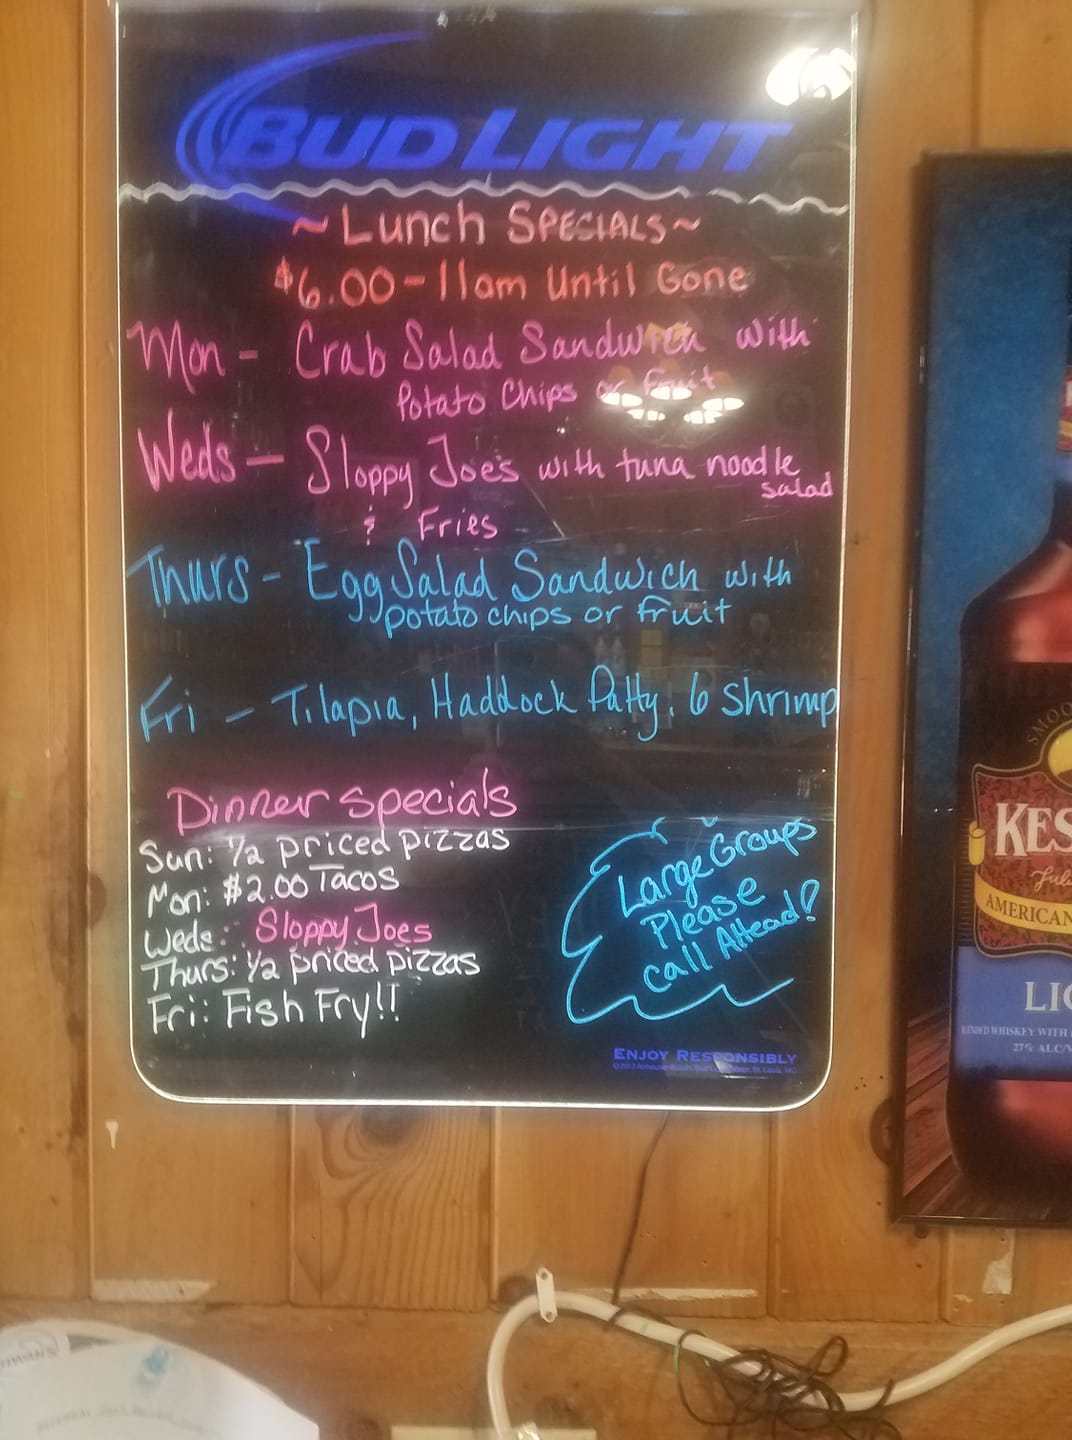 BUD LIGHT
~Lunch SPECIALS~
$6.00-11am Until Gone
Mon - Crab Salad Sandwich with
Potato Chips or fruit
Weds - Sloppy Joes with tuna noodle
salad
& Fries
Thurs - Egg Salad Sandwich with
potato chips or fruit
Fri - Tilapia, Haddock Patty, 6 Shrimp
Dinner specials
Sun: 1/2 priced pizzas
Mon: $2.00 Tacos
Weds: Sloppy Joes
Thurs: 1/2 priced pizzas
Fri: Fish Fry!!
Large Groups
Please
call Ahead!
ENJOY RESPONSIBLY
SMOO
KES
AMERICAN
LIG